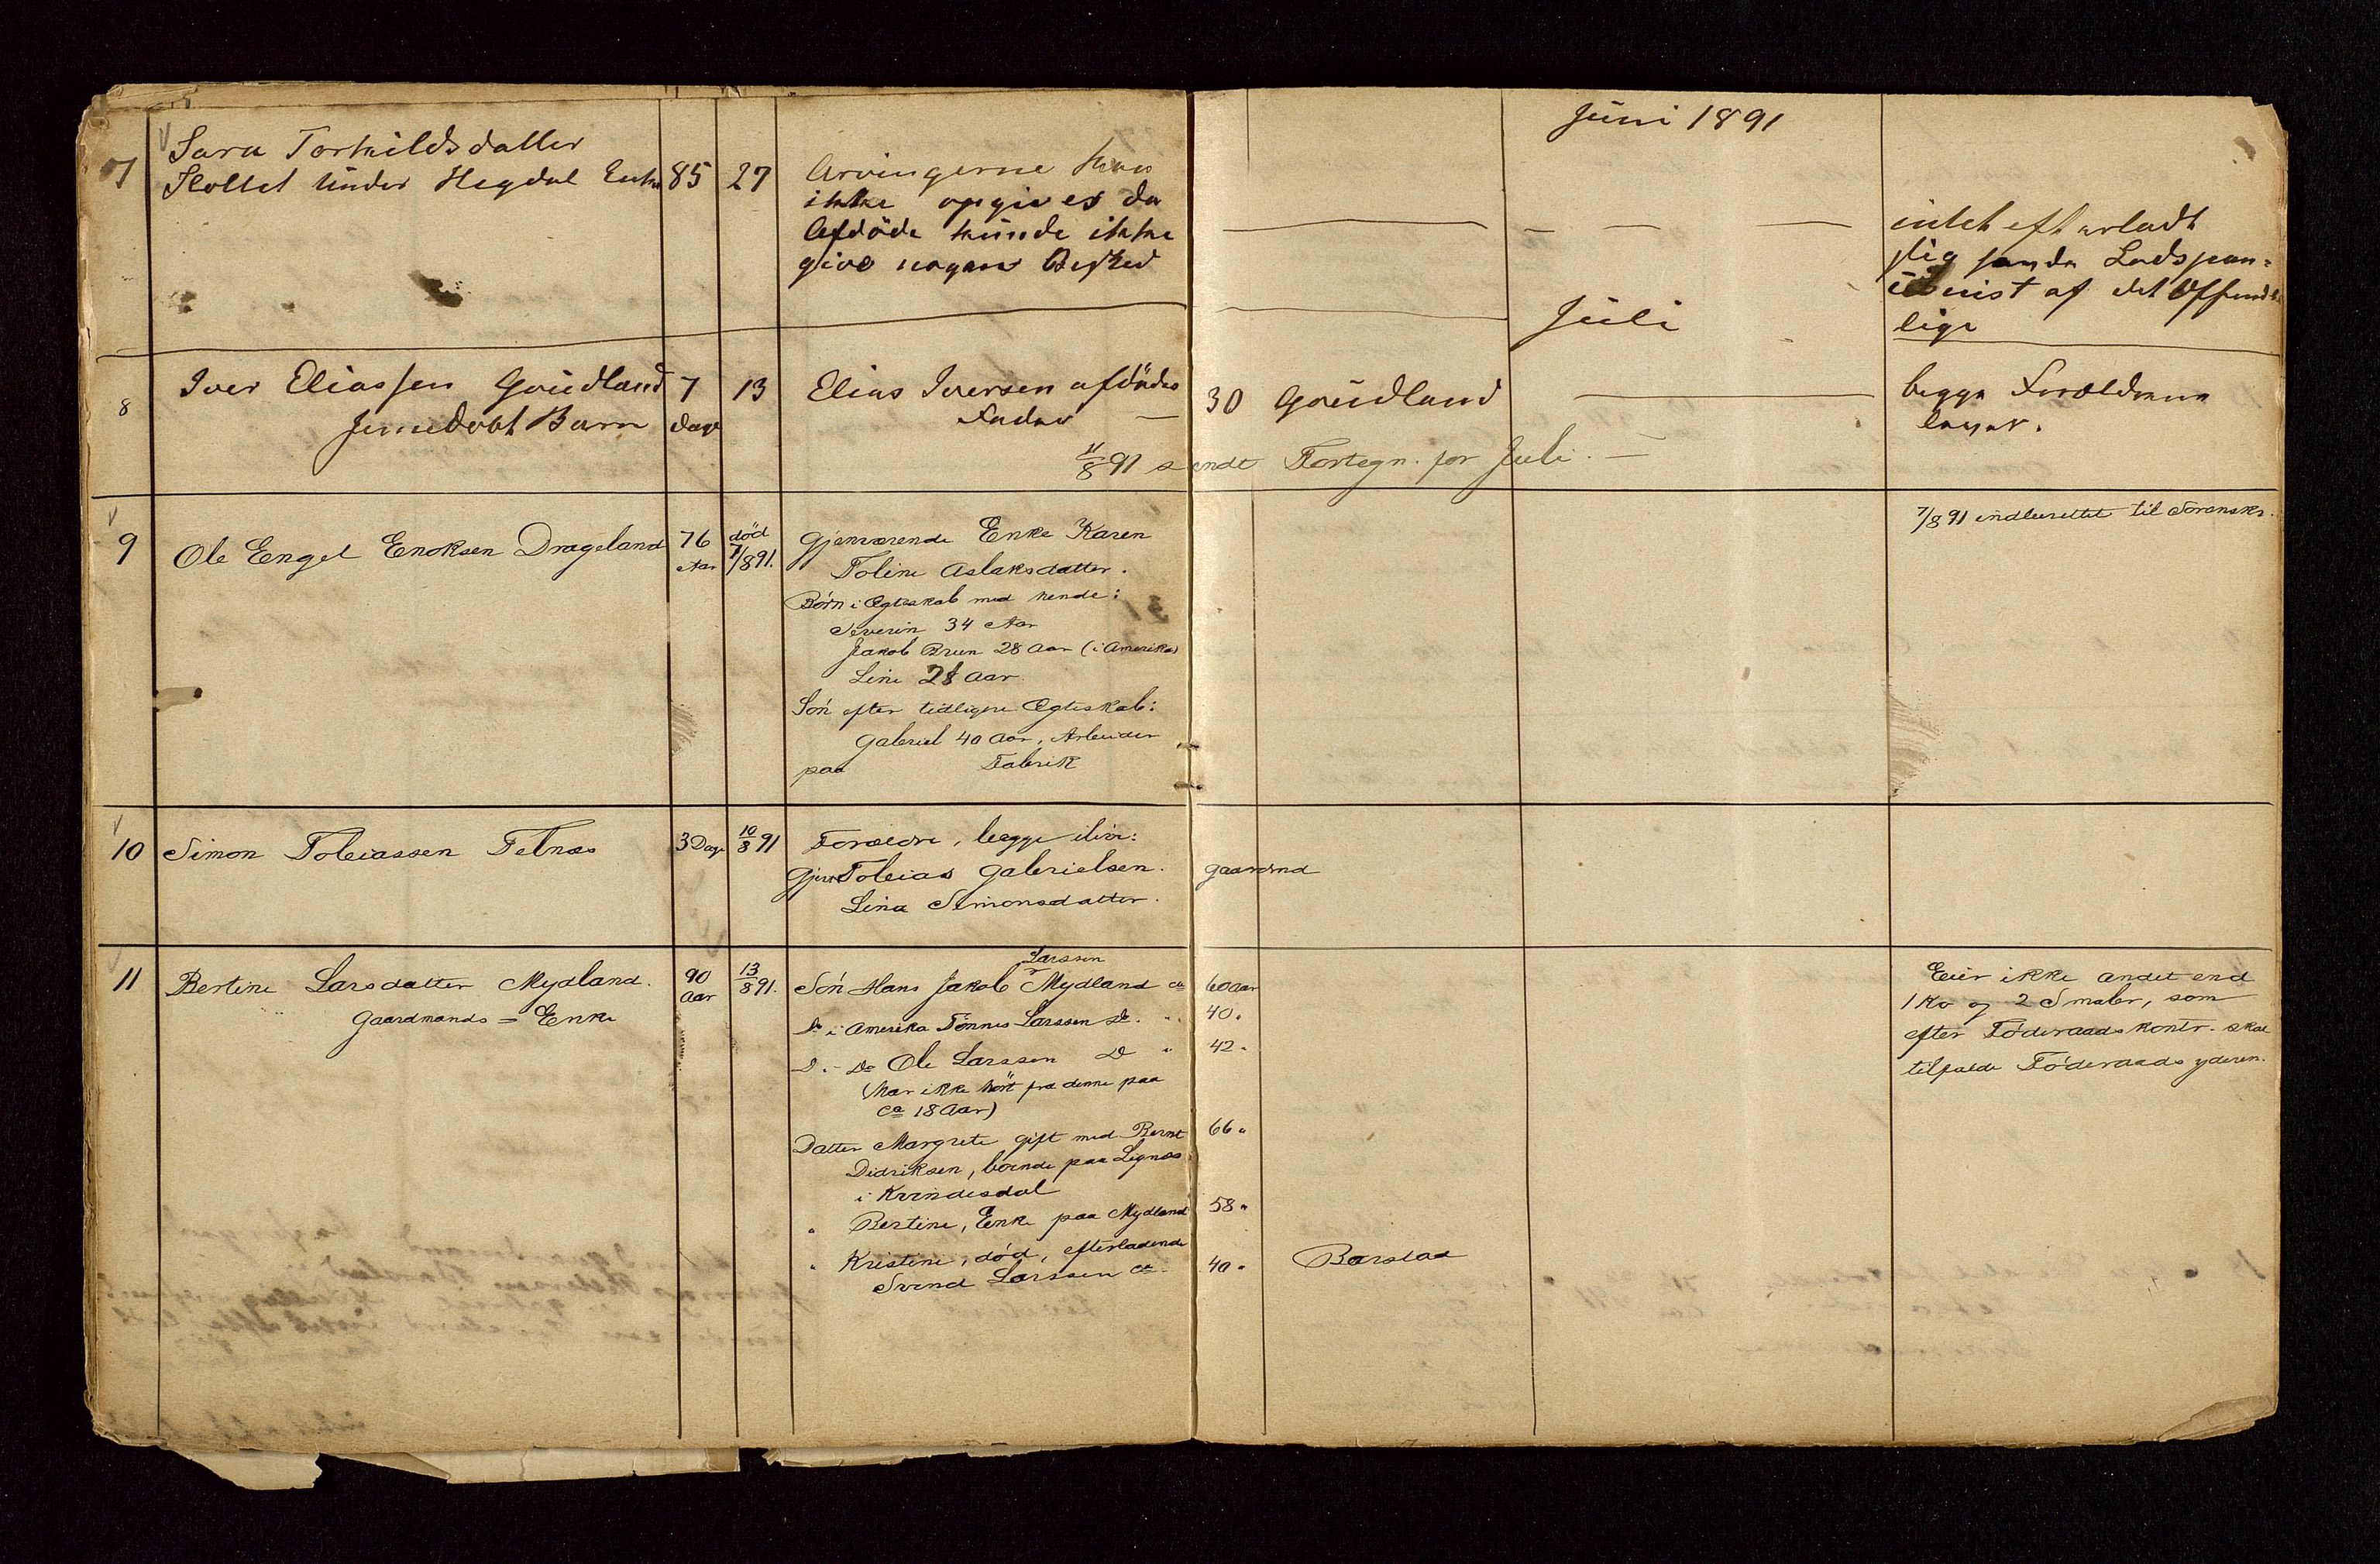 Juni 1891
7 Sara Torkildsdatter 85 27 Arvingerne kan
Slottet under Hegdal Enke ikke opgives da
Afdöde kunde ikke
give nogen Besked
intet efterladt
Lads paa=
af det Offendt=
lige
Juli
8 Iver Eliassen Goudland 7 13 Elias Iversen afdödes 30 Goudland begge Forældrene
Barn Dage Fader lever.
11/8 91 sendt Fortegn. for Juli.
9 Ole Eengel Enoksen Drageland 76 Aar död 7/8 91. Gjenværende Enke Karen 7/8 91 indberettet til Sorenskr.
Toline Aslaksdatter.
Børn i Ægteskab med hende:
Severin 34 Aar
Jakob Brun 28 Aar (i Amerika)
Line 28 Aar
Søn efter tidligere Ægteskab:
Gabriel 40 Aar, Arbeider
paa Fabrik
10 Simon Tobiassen Felnæs 3 Dage 10/8 91 Forældre, begge ilive:
Tobias Gabrielsen. Gaardmd
Lina Simonsdatter.
11 Bertine Larsdatter Mydland. 90 Aar 13/8 91. Søn Hans Jakob Larssen Mydland ca 60 Aar
Gaardmands = Enke
Do i Amerika Tönnes Larssen Do. " 40 "
D. - Do Ole Larssen D " 42 "
(Har ikke hört fra denne paa
ca 18 Aar)
Datter Margrete gift med Bernt 66 "
Didriksen, boende paa Lignæs
i Kvindesdal
" Bertine, Enke paa Mydland 58 "
" Kristine, död, efterladende
Svend Larssen ca. 40 " Barstad
Eier ikke andet end
1 Ko og 2 Smaler, som
efter Föderaadskontr. skal
tilfalde Föderaads yderen.